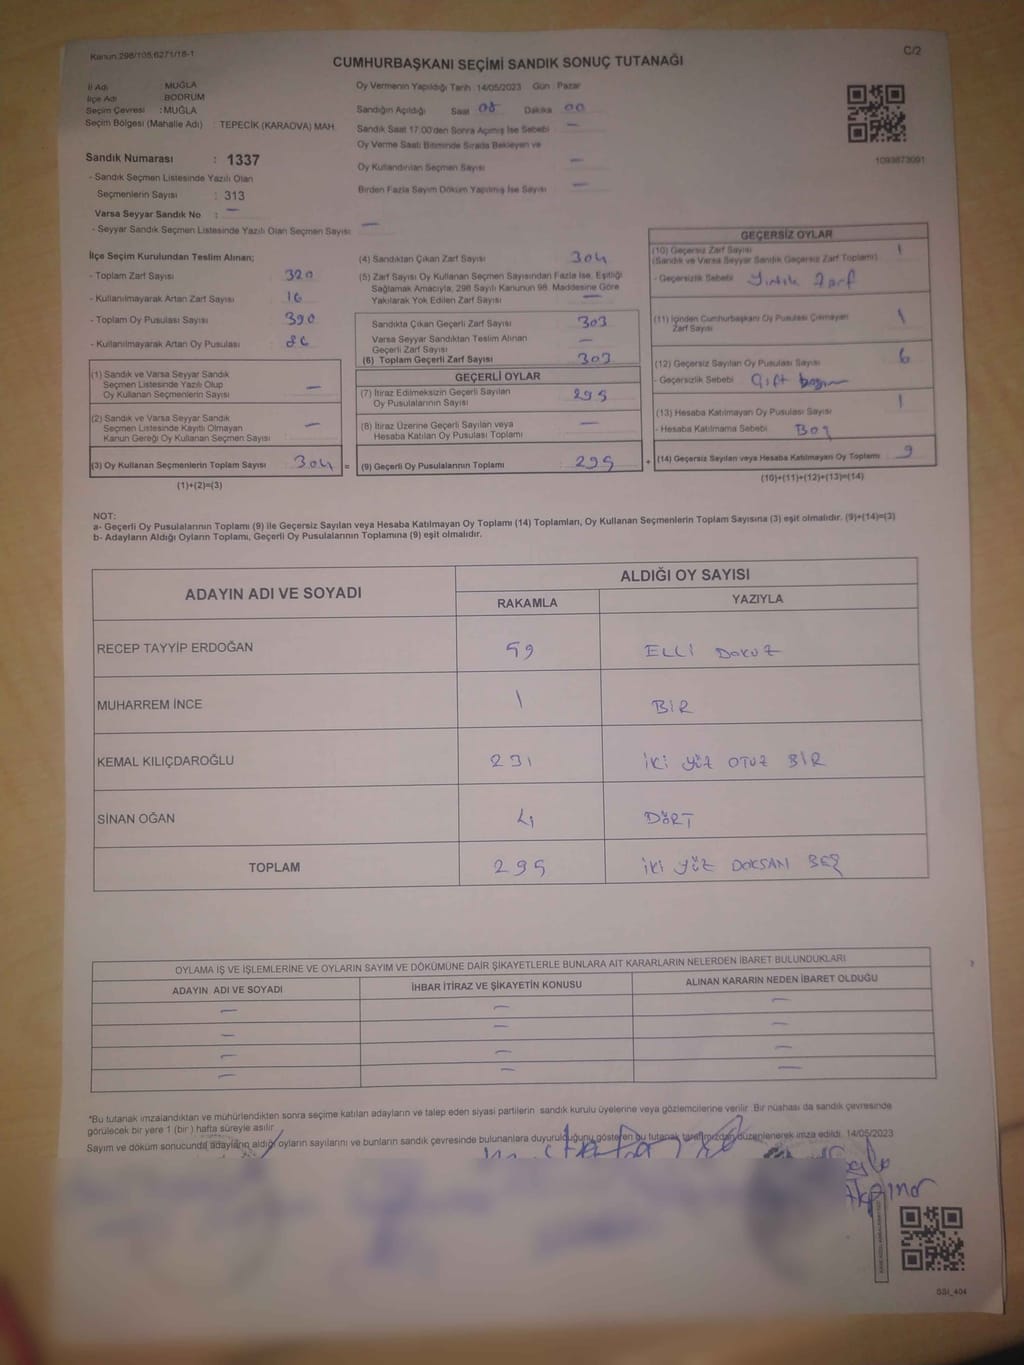 Kanun:298/105,6271/18-1
C/2
CUMHURBAŞKANI SEÇİMİ SANDIK SONUÇ TUTANAĞI
İl Adı : MUĞLA
İlçe Adı : BODRUM
Seçim Çevresi : MUĞLA
Seçim Bölgesi (Mahalle Adı) : TEPECİK (KARAOVA) MAH.
Sandık Numarası : 1337
- Sandık Seçmen Listesinde Yazılı Olan
Seçmenlerin Sayısı : 313
Varsa Seyyar Sandık No : —
- Seyyar Sandık Seçmen Listesinde Yazılı Olan Seçmen Sayısı : —
Oy Vermenin Yapıldığı Tarih : 14/05/2023 Gün : Pazar
Sandığın Açıldığı Saat 08 Dakika 00
Sandık Saat 17.00'den Sonra Açılmış İse Sebebi —
Oy Verme Saati Bitiminde Sırada Bekleyen ve
Oy Kullandırılan Seçmen Sayısı —
Birden Fazla Sayım Döküm Yapılmış İse Sayısı —
1093873091
İlçe Seçim Kurulundan Teslim Alınan;
- Toplam Zarf Sayısı : 320
- Kullanılmayarak Artan Zarf Sayısı : 16
- Toplam Oy Pusulası Sayısı : 390
- Kullanılmayarak Artan Oy Pusulası : 86
(1) Sandık ve Varsa Seyyar Sandık
Seçmen Listesinde Yazılı Olup
Oy Kullanan Seçmenlerin Sayısı : —
(2) Sandık ve Varsa Seyyar Sandık
Seçmen Listesinde Kayıtlı Olmayan
Kanun Gereği Oy Kullanan Seçmen Sayısı : —
(3) Oy Kullanan Seçmenlerin Toplam Sayısı : 304 =
(1)+(2)=(3)
(4) Sandıktan Çıkan Zarf Sayısı : 304
(5) Zarf Sayısı Oy Kullanan Seçmen Sayısından Fazla İse, Eşitliği
Sağlamak Amacıyla, 298 Sayılı Kanunun 98. Maddesine Göre
Yakılarak Yok Edilen Zarf Sayısı : —
Sandıkta Çıkan Geçerli Zarf Sayısı : 303
Varsa Seyyar Sandıktan Teslim Alınan
Geçerli Zarf Sayısı : —
(6) Toplam Geçerli Zarf Sayısı : 303
GEÇERLİ OYLAR
(7) İtiraz Edilmeksizin Geçerli Sayılan
Oy Pusulalarının Sayısı : 295
(8) İtiraz Üzerine Geçerli Sayılan veya
Hesaba Katılan Oy Pusulası Toplamı : —
(9) Geçerli Oy Pusulalarının Toplamı : 295 +
GEÇERSİZ OYLAR
(10) Geçersiz Zarf Sayısı : 1
(Sandık ve Varsa Seyyar Sandık Geçersiz Zarf Toplamı)
- Geçersizlik Sebebi : Yırtık Zarf
(11) İçinden Cumhurbaşkanı Oy Pusulası Çıkmayan
Zarf Sayısı : 1
(12) Geçersiz Sayılan Oy Pusulası Sayısı : 6
- Geçersizlik Sebebi : Çift
(13) Hesaba Katılmayan Oy Pusulası Sayısı : 1
- Hesaba Katılmama Sebebi : Boş
(14) Geçersiz Sayılan veya Hesaba Katılmayan Oy Toplamı : 9
(10)+(11)+(12)+(13)=(14)
NOT:
a- Geçerli Oy Pusulalarının Toplamı (9) ile Geçersiz Sayılan veya Hesaba Katılmayan Oy Toplamı (14) Toplamları, Oy Kullanan Seçmenlerin Toplam Sayısına (3) eşit olmalıdır. (9)+(14)=(3)
b- Adayların Aldığı Oyların Toplamı, Geçerli Oy Pusulalarının Toplamına (9) eşit olmalıdır.
ADAYIN ADI VE SOYADI
ALDIĞI OY SAYISI
RAKAMLA YAZIYLA
RECEP TAYYİP ERDOĞAN 59 ELLİ DOKUZ
MUHARREM İNCE 1 BİR
KEMAL KILIÇDAROĞLU 231 İKİ YÜZ OTUZ BİR
SİNAN OĞAN 4 DÖRT
TOPLAM 295 İKİ YÜZ DOKSAN BEŞ
OYLAMA İŞ VE İŞLEMLERİNE VE OYLARIN SAYIM VE DÖKÜMÜNE DAİR ŞİKAYETLERLE BUNLARA AİT KARARLARIN NELERDEN İBARET BULUNDUKLARI
ADAYIN ADI VE SOYADI İHBAR İTİRAZ VE ŞİKAYETİN KONUSU ALINAN KARARIN NEDEN İBARET OLDUĞU
— — —
— — —
— — —
— — —
*Bu tutanak imzalandıktan ve mühürlendikten sonra seçime katılan adayların ve talep eden siyasi partilerin sandık kurulu üyelerine veya gözlemcilerine verilir. Bir nüshası da sandık çevresinde
görülecek bir yere 1 (bir) hafta süreyle asılır.
Sayım ve döküm sonucunda adayların aldığı oyların sayılarını ve bunların sandık çevresinde bulunanlara duyurulduğunu gösteren bu tutanak tarafımızdan düzenlenerek imza edildi. 14/05/2023
GSI_404